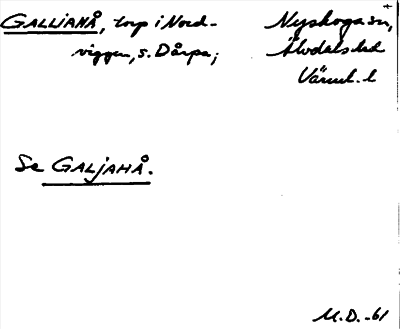 GALLIAHÅ, torp i Nord-
viggen, s. Dårpa;
Nyskoga sn,
Älvdals hd
Värml. l
Se GALJAHÅ.
M.D. -61